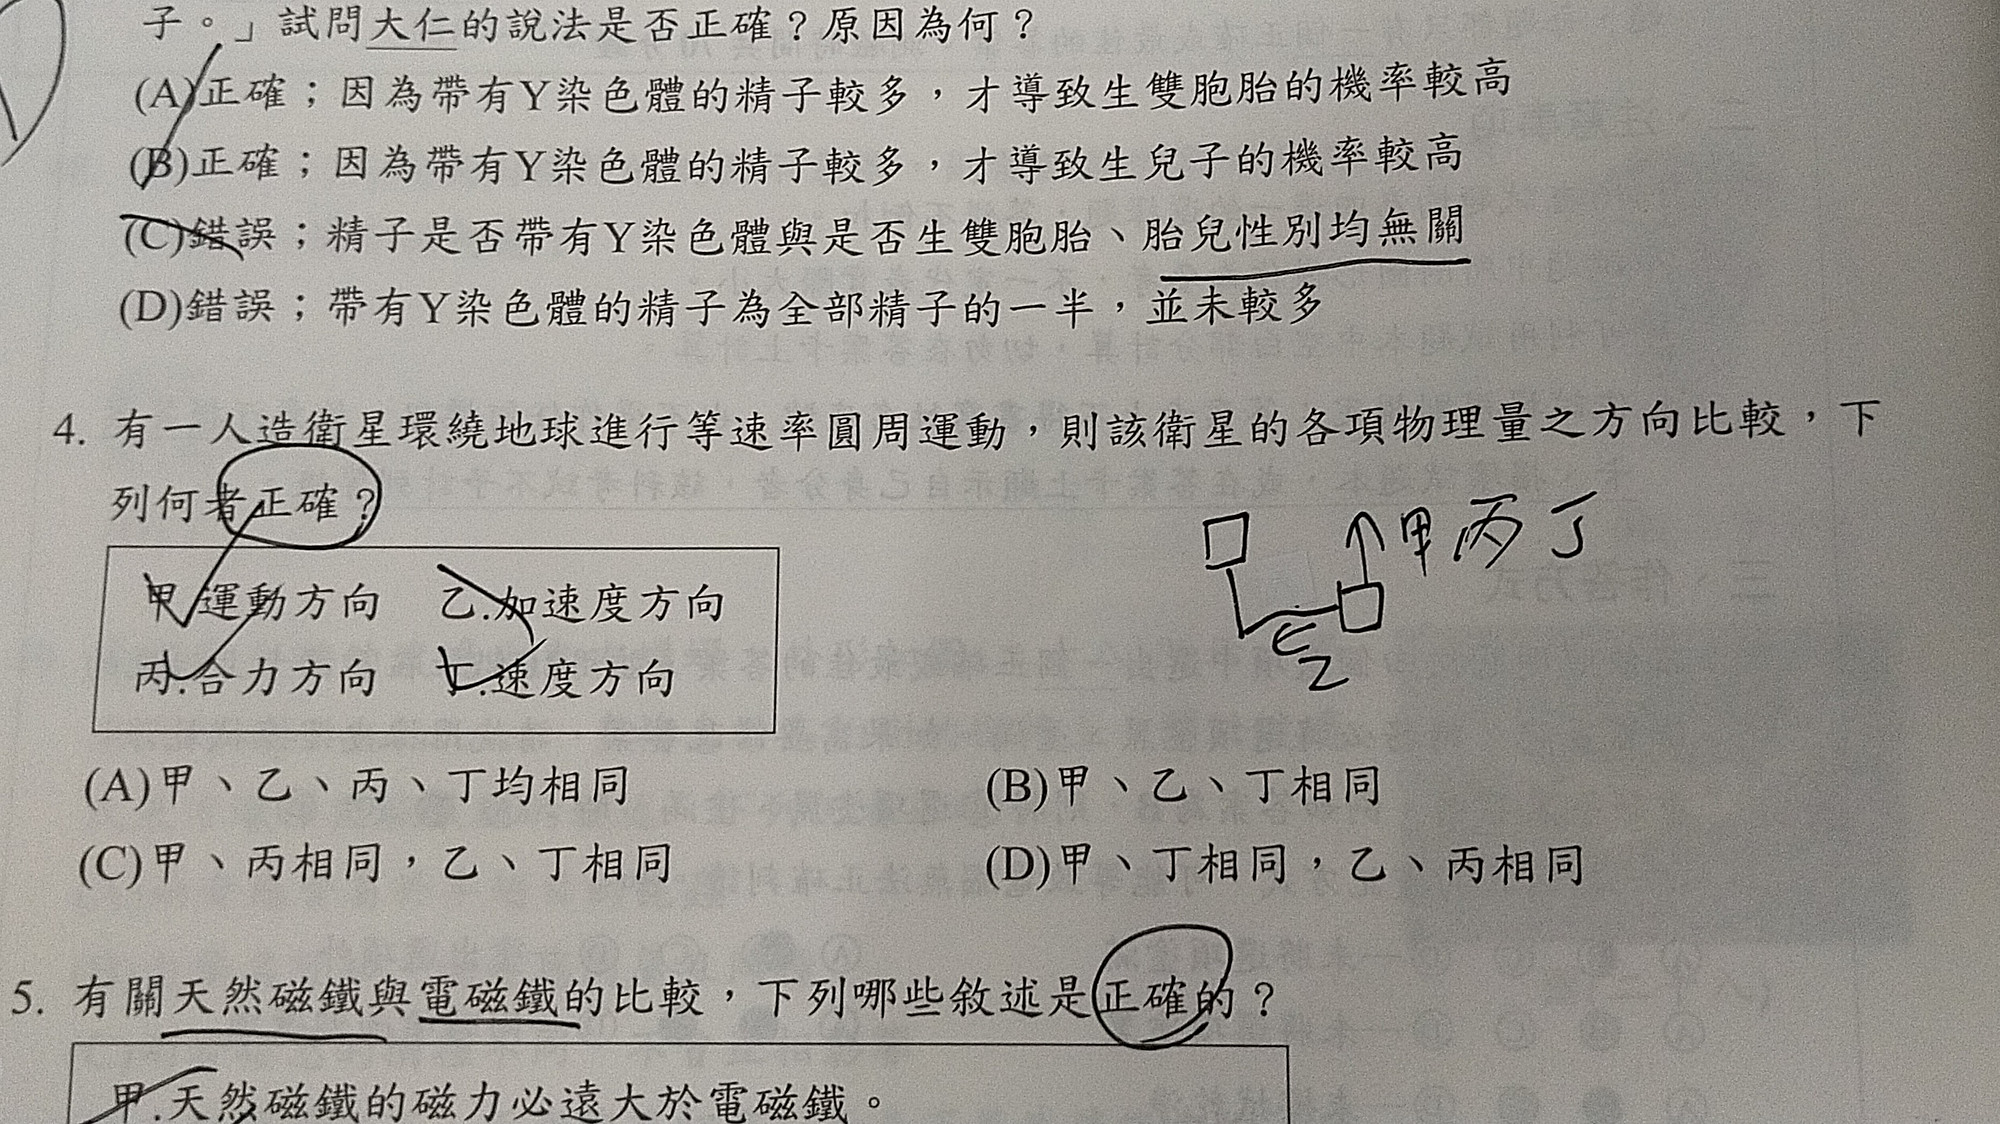 子。」試問大仁的說法是否正確？原因為何？
(A)正確；因為帶有Y染色體的精子較多，才導致生雙胞胎的機率較高
(B)正確；因為帶有Y染色體的精子較多，才導致生兒子的機率較高
(C)錯誤；精子是否帶有Y染色體與是否生雙胞胎、胎兒性別均無關
(D)錯誤；帶有Y染色體的精子為全部精子的一半，並未較多
4. 有一人造衛星環繞地球進行等速率圓周運動，則該衛星的各項物理量之方向比較，下
列何者正確？
甲.運動方向 乙.加速度方向
丙.合力方向 丁.速度方向
甲丙丁
乙
(A)甲、乙、丙、丁均相同 (B)甲、乙、丁相同
(C)甲、丙相同，乙、丁相同 (D)甲、丁相同，乙、丙相同
5. 有關天然磁鐵與電磁鐵的比較，下列哪些敘述是正確的？
甲.天然磁鐵的磁力必遠大於電磁鐵。